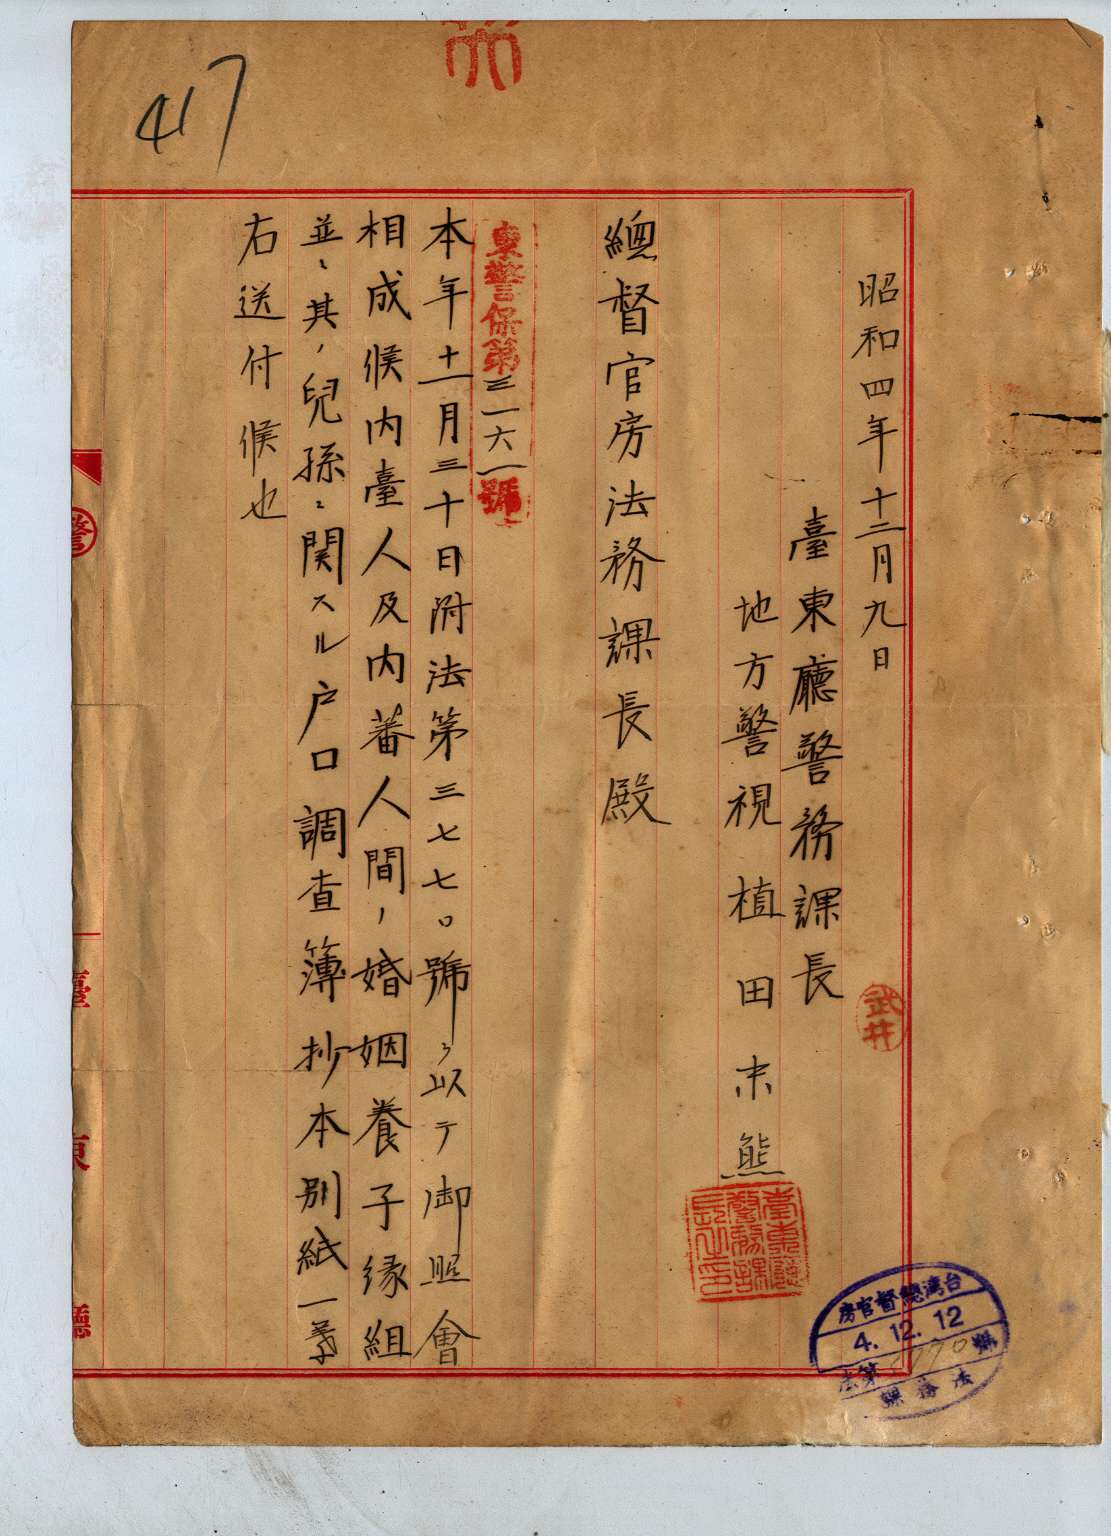 417
昭和四年十二月九日
臺東廳警務課長
地方警視 植田末熊
武井
臺東廳
警務課
長之印
總督官房法務課長殿
東警保第三一六一號
本年十一月三十日附法第三七七〇號ヲ以テ御照會
相成候內臺人及內蕃人間ノ婚姻養子緣組
並ニ其ノ兒孫ニ関スル戶口調查簿抄本別紙一葉
右送付候也
台灣總督官房
4.12.12
法第3770號
法務課
警
臺東廳